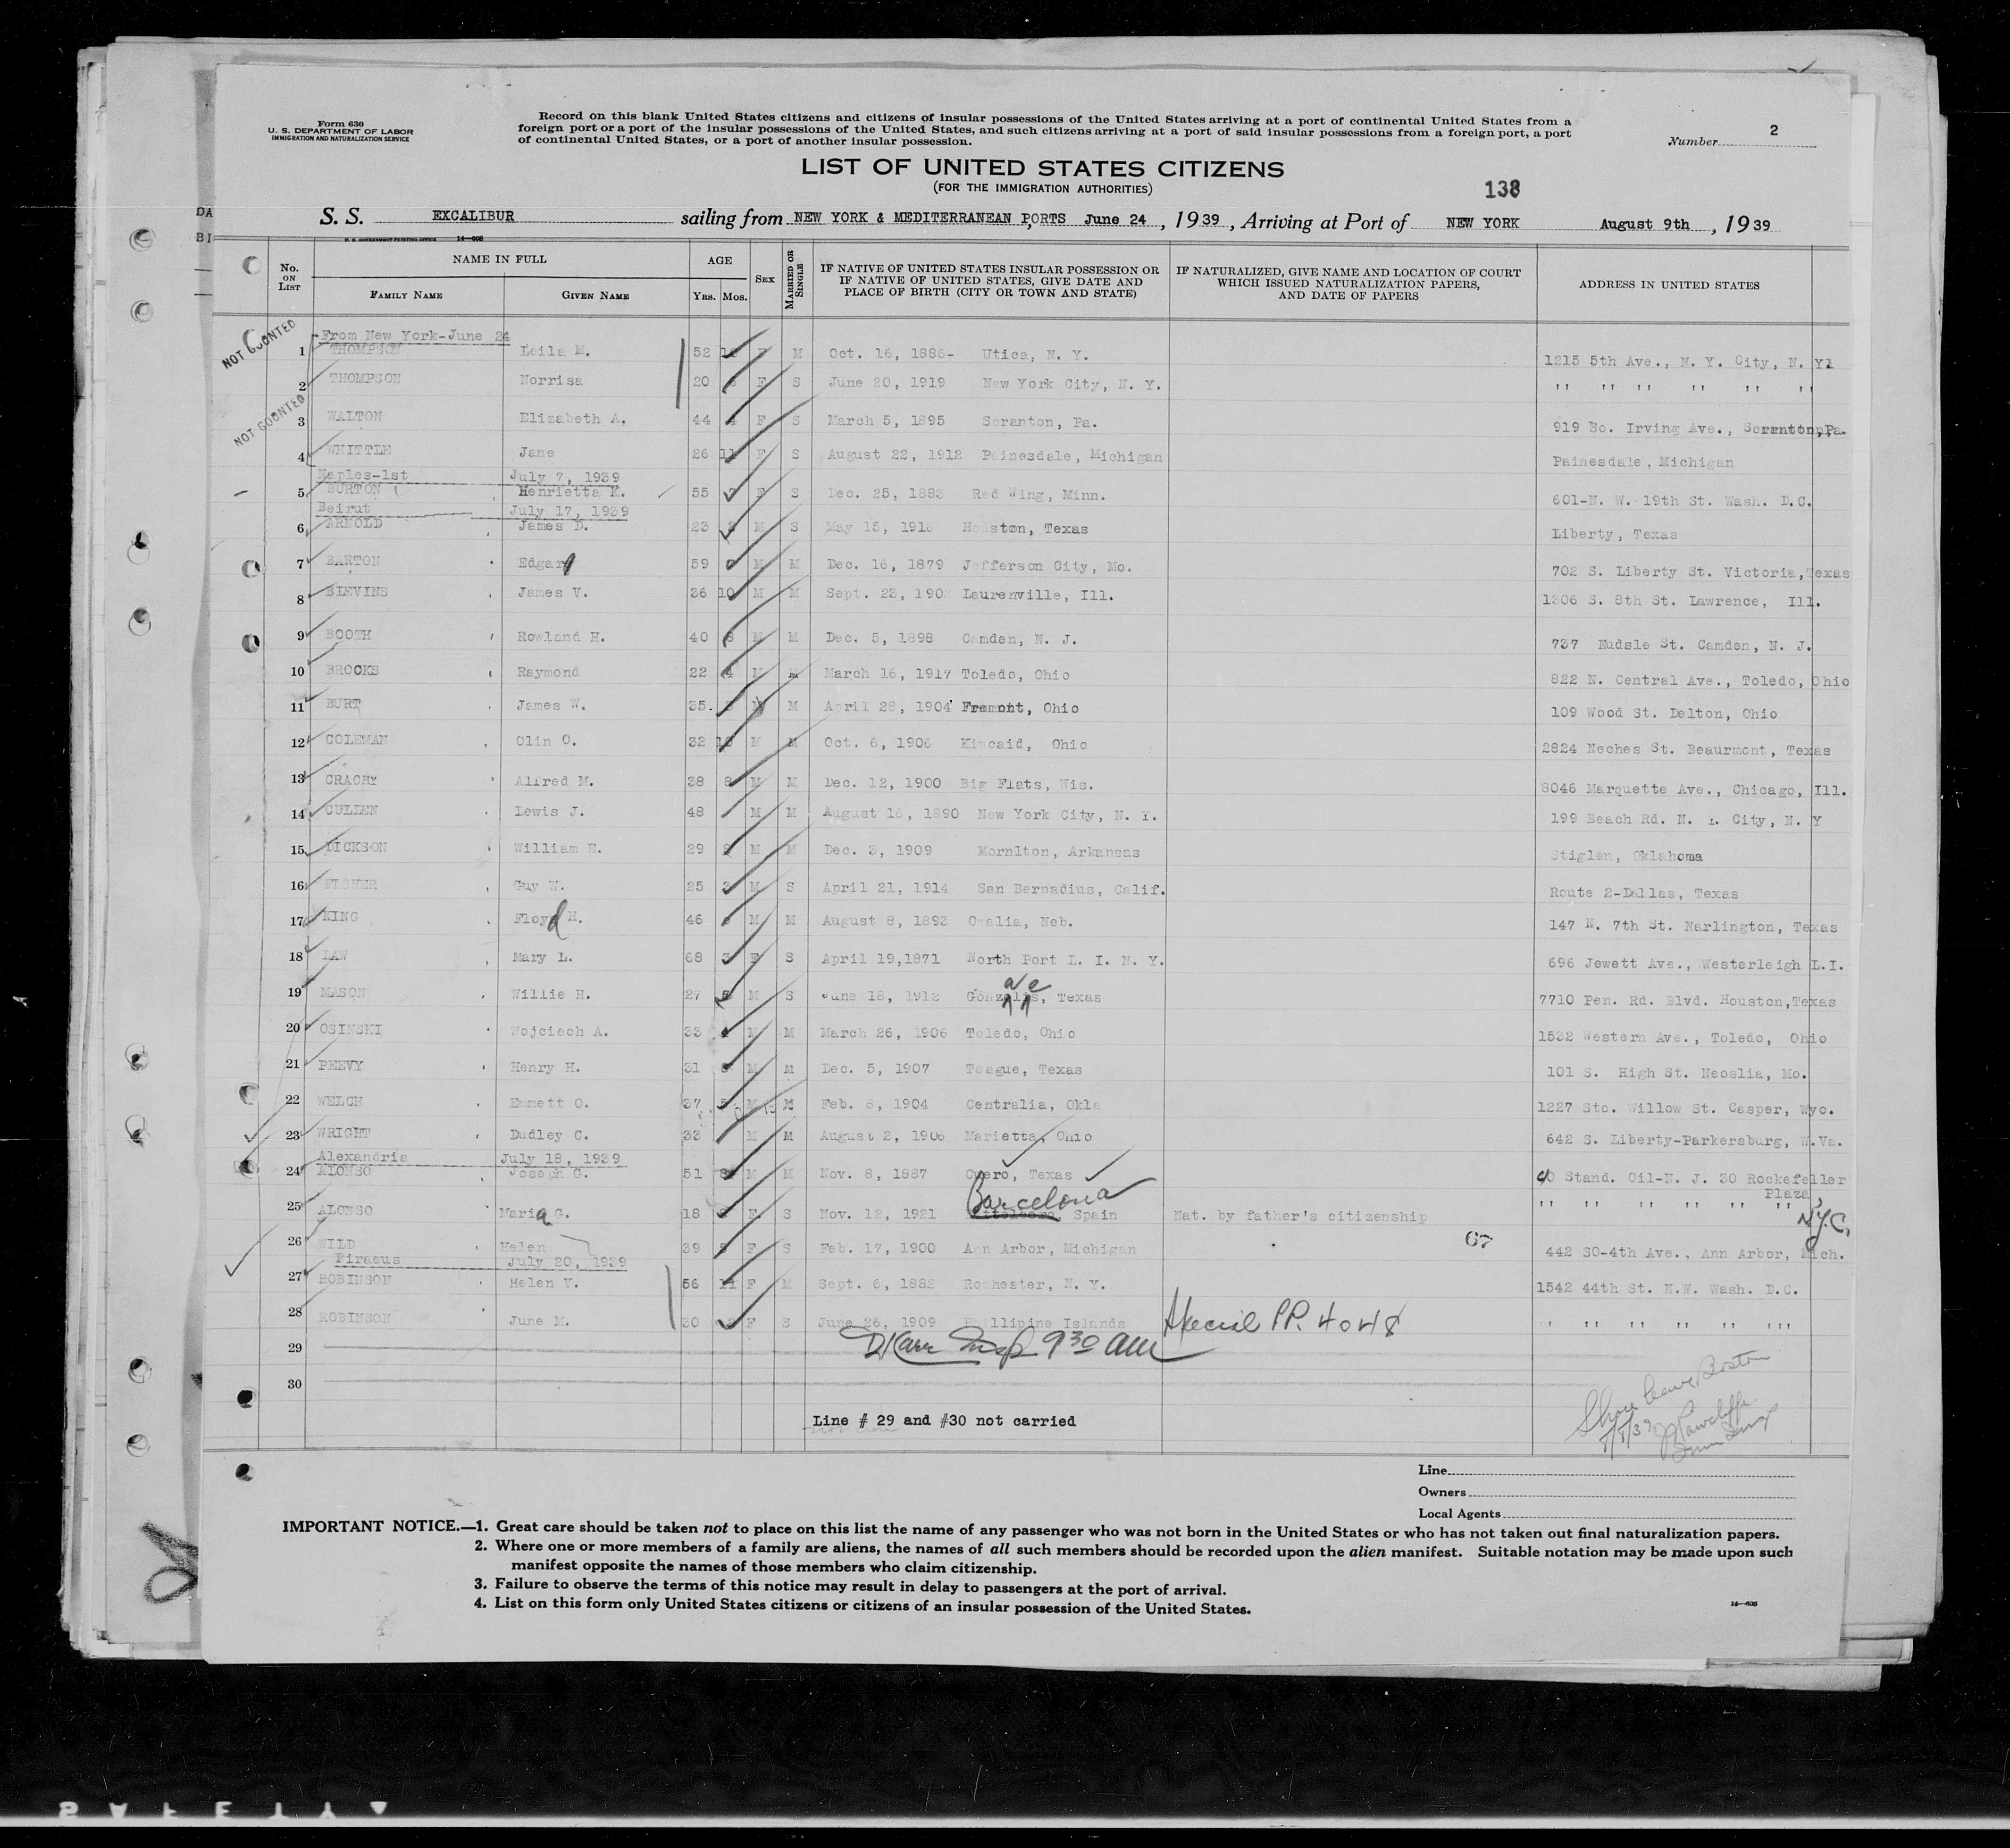 Form 630
U. S. DEPARTMENT OF LABOR
IMMIGRATION AND NATURALIZATION SERVICE
Record on this blank United States citizens and citizens of insular possessions of the United States arriving at a port of continental United States from a
foreign port or a port of the insular possessions of the United States, and such citizens arriving at a port of said insular possessions from a foreign port, a port
of continental United States, or a port of another insular possession.
Number 2
LIST OF UNITED STATES CITIZENS
(FOR THE IMMIGRATION AUTHORITIES)
138
S. S. EXCALIBUR sailing from NEW YORK & MEDITERRANEAN PORTS June 24, 1939, Arriving at Port of NEW YORK August 9th, 1939
DA
BI
No. ON LIST NAME IN FULL FAMILY NAME GIVEN NAME AGE YRS. MOS. SEX MARRIED OR SINGLE IF NATIVE OF UNITED STATES INSULAR POSSESSION OR IF NATIVE OF UNITED STATES, GIVE DATE AND PLACE OF BIRTH (CITY OR TOWN AND STATE) IF NATURALIZED, GIVE NAME AND LOCATION OF COURT WHICH ISSUED NATURALIZATION PAPERS, AND DATE OF PAPERS ADDRESS IN UNITED STATES
NOT COONTED
From New York-June 24
1 THOMPSON Leila M. 52 F M Oct. 16, 1886- Utica, N. Y. 1215 5th Ave., N. Y. City, N. Y.
2 THOMPSON Norrisa 20 F S June 20, 1919 New York City, N. Y. '' '' '' '' '' ''
NOT COONTED
3 WALTON Elizabeth A. 44 4 F S March 5, 1895 Scranton, Pa. 919 So. Irving Ave., Scranton, Pa.
4 WHITTLE Jane 26 11 F S August 22, 1912 Painesdale, Michigan Painesdale, Michigan
Naples-1st July 7, 1939
5 BURTON Henrietta K. 55 7 F S Dec. 25, 1883 Red Wing, Minn. 601-N. W. 19th St. Wash. D.C.
Beirut July 17, 1939
6 ARNOLD James D. 23 M S May 15, 1916 Houston, Texas Liberty, Texas
7 BARTON Edgar 59 M M Dec. 16, 1879 Jefferson City, Mo. 702 S. Liberty St. Victoria, Texas
8 BLEVINS James V. 36 10 M M Sept. 23, 1902 Laurenville, Ill. 1306 S. 8th St. Lawrence, Ill.
9 BOOTH Rowland H. 40 8 M M Dec. 5, 1898 Camden, N. J. 737 Nudsle St. Camden, N. J.
10 BROOKS Raymond 22 4 M M March 16, 1917 Toledo, Ohio 822 N. Central Ave., Toledo, Ohio
11 BURT James W. 35. 3 M M April 28, 1904 Fremont, Ohio 109 Wood St. Delton, Ohio
12 COLEMAN Olin O. 32 10 M M Oct. 6, 1906 Kincaid, Ohio 2824 Neches St. Beaurmont, Texas
13 CRACHY Alfred M. 38 8 M M Dec. 12, 1900 Big Flats, Wis. 8046 Marquette Ave., Chicago, Ill.
14 CULLEN Lewis J. 48 M M August 16, 1890 New York City, N. Y. 199 Beach Rd. N. Y. City, N. Y
15 DICKSON William E. 29 8 M M Dec. 3, 1909 Mornlton, Arkansas Stiglen, Oklahoma
16 FISHER Guy W. 25 3 M S April 21, 1914 San Bernadius, Calif. Route 2-Dallas, Texas
17 KING Floyd H. 46 M M August 8, 1893 Omalia, Neb. 147 N. 7th St. Narlington, Texas
18 LAW Mary L. 68 3 F S April 19,1871 North Port L. I. N. Y. 696 Jewett Ave., Westerleigh L.I.
a e
19 MASON Willie H. 27 M S June 18, 1912 Gonzolis, Texas 7710 Pen. Rd. Blvd. Houston,Texas
20 OSINSKI Wojciech A. 33 4 M M March 26, 1906 Toledo, Ohio 1532 Western Ave., Toledo, Ohio
21 PEEVY Henry H. 31 8 M M Dec. 5, 1907 Teague, Texas 101 S. High St. Neoslia, Mo.
22 WELCH Emmett O. 37 5 M M Feb. 8, 1904 Centralia, Okla 1227 Sto. Willow St. Casper, Wyo.
23 WRIGHT Dudley C. 33 M M August 2, 1906 Marietta, Ohio 642 S. Liberty-Parkersburg, W.Va.
Alexandria July 18, 1939
24 ALONSO Joseph C. 51 8 M M Nov. 8, 1887 Cuero, Texas c/o Stand. Oil-N. J. 30 Rockefeller
Plaza,
Barcelona
25 ALONSO Maria G. 18 F S Nov. 12, 1921 Spain Nat. by father's citizenship '' '' '' '' '' '' N.Y.C.
26 WILD Helen 39 5 F S Feb. 17, 1900 Ann Arbor, Michigan 67 442 SO-4th Ave., Ann Arbor, Mich.
Piraeus July 20, 1939
27 ROBINSON Helen V. 56 11 F M Sept. 6, 1882 Rochester, N. Y. 1542 44th St. N.W. Wash. D.C.
28 ROBINSON June M. 30 F S June 26, 1909 Phillipine Islands Special P.P. 4048 '' '' '' '' '' '''
29 D Karr Insp 9 30 am
30
Shore leave Boston
8/8/39
Line # 29 and #30 not carried
Line
Owners
Local Agents
IMPORTANT NOTICE.—1. Great care should be taken not to place on this list the name of any passenger who was not born in the United States or who has not taken out final naturalization papers.
2. Where one or more members of a family are aliens, the names of all such members should be recorded upon the alien manifest. Suitable notation may be made upon such
manifest opposite the names of those members who claim citizenship.
3. Failure to observe the terms of this notice may result in delay to passengers at the port of arrival.
4. List on this form only United States citizens or citizens of an insular possession of the United States.
SAFETY